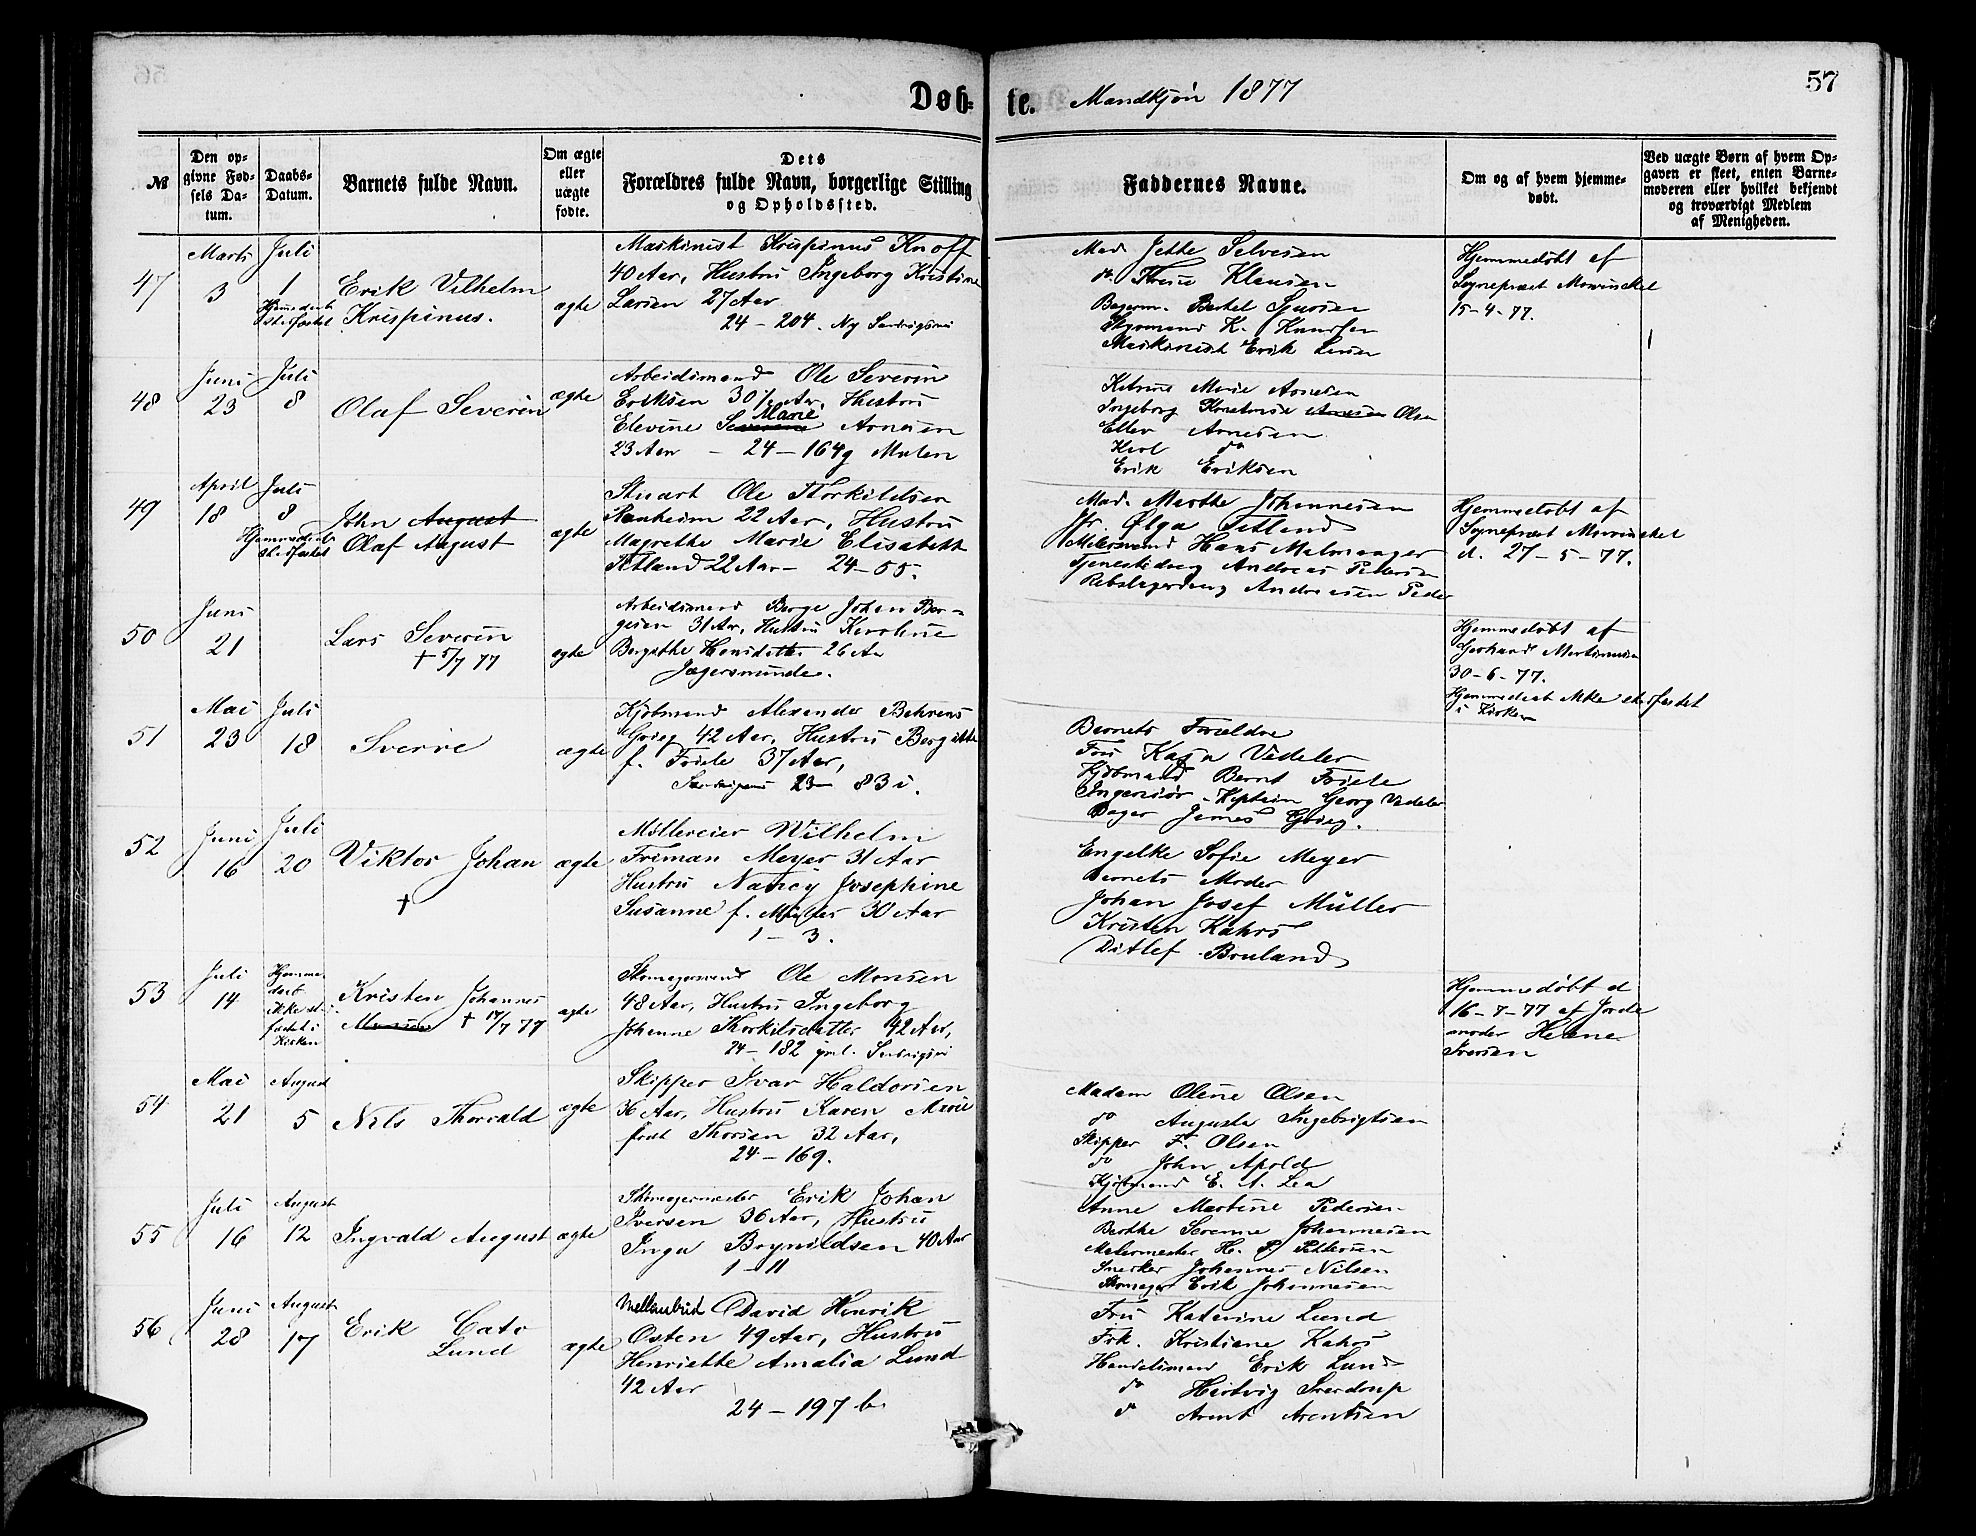 57
Døb- te. Mandkjøn 1877
№
Den op-
givne Fød-
sels Da-
tum.
Daabs-
Datum.
Barnets fulde Navn.
Om ægte
eller
uægte
fødte.
Dets
Forældres fulde Navn, borgerlige Stilling
og Opholdssted.
Faddernes Navne.
Om og af hvem hjemme-
døbt.
Ved uægte Børn af hvem Op-
gaven er skeet, enten Barne-
moderen eller hvilket bekjendt
og troværdigt Medlem
af Menigheden.
47
Marts
3
Juli
1
Erik Vilhelm
Krispinus.
ægte
Maskinist Krispinus Knoff
40 Aar, Hustru Ingeborg Kristine
Larsen 27 Aar
24 - 204. Ny Sandvigsvei
Mad. Jette Selvesen
do Klausen
Bertel
Styrmand K. Knudsen
Maskinist Erik
Hjemmedøbt af
Sognepræst Mowinckel
15-4-77.
48
Juni
23
Juli
8
Olaf Severin
ægte
Arbeidsmand Ole Severin
Eriksen 30 1/2 Aar, Hustru
Marie
Elevine Severine Arnesen
23 Aar - 24 - 164g Mulen
Katrine Marie Arnesen
Ingeborg Arnesen Olsen
Ellev Arnesen
Karl do
Erik Eriksen
49
April
18
Juli
8
Hjemmedaab
stadfæstet
John August
Olaf August
ægte
Stuart Ole Thorkildsen
Ranheim 22 Aar, Hustru
Magrethe Marie Elisabeth
Tetland 22 Aar - 24 - 55.
Mad. Marthe Johannesen
Jfr. Olga Tetland
Malersvend Hans Malmanger
Tjenestedreng Andreas Pedersen
Rebslagerdreng
Hjemmedøbt af
Sognepræst Mowinckel
d. 27-5-77.
50
Juni
21
Lars Severin
† 5/7 77
ægte
Arbeidsmand Børge Johan Bør-
gesen 31 Aar, Hustru
26 Aar
Jægersminde.
Hjemmedøbt af
Gerhard Martinusen
30-6-77.
Hjemmedaab ikke stadfæstet
i Kirken
51
Mai
23
Juli
18
Sverre
ægte
Kjøbmand Alexander Behrens
Grieg 42 Aar, Hustru Bergitte
f. Friele 37 Aar,
23 - 83 i.
Barnets Forældre
Fru Kaja Vedeler
Kjøbmand Bernt Friele
Ingeniør-Kaptein Georg Vedeler
Bager James Grieg.
52
Juni
16
Juli
20
Viktor Johan
†
ægte
Møllereier Wilhelm
Friman Meyer 31 Aar
Hustru Nancy Josephine
Susanne f. Müller 30 Aar
1 - 3.
Engelke Sofie Meyer
Barnets Moder
Johan Josef Müller
Kristen Kahrs
Ditlef Bruland
53
Juli
14
Hjemme-
daab
ikke stad-
fæstet i
Kirken
Kristen Johannes
Monsen † 17/7 77
ægte
Skomagersvend Ole Monsen
48 Aar, Hustru Ingeborg
Johanne Thorkilsdatter 42 Aar,
24 - 182 gml. Sandvigsvei
Hjemmedøbt d
16-7-77 af Jorde
moder Helene
Iversen
54
Mai
21
August
5
Nils Thorvald
ægte
Skipper Ivar Haldorsen
36 Aar, Hustru Karen Marie
født Thorsen 32 Aar,
24 - 169.
Madam Oline Olsen
do Augusta Ingebrigtsen
Skipper F. Olsen
do John Apold
Kjøbmand E. A. Lea
55
Juli
16
August
12
Ingvald August
ægte
Skomagermester Erik Johan
Iversen 36 Aar, Hustru
Inga Brynildsen 40 Aar
1 - 11
Anne Martine Pedersen
Berthe Serenne Johannesen
Malermester H. P. Pettersen
Snedker Johannes Nilsen
Skomager Erik Johannesen
56
Juni
28
August
17
Erik Cato
Lund
ægte
David Henrik
Osten 49 Aar, Hustru
Henriette Amalia Lund
42 Aar
24 - 197 b.
Fru Katarine Lund
Frk. Kristiane Kahrs
Handelsmand Erik Lund
do Hartvig Sverdrup
do Arent Arentsen